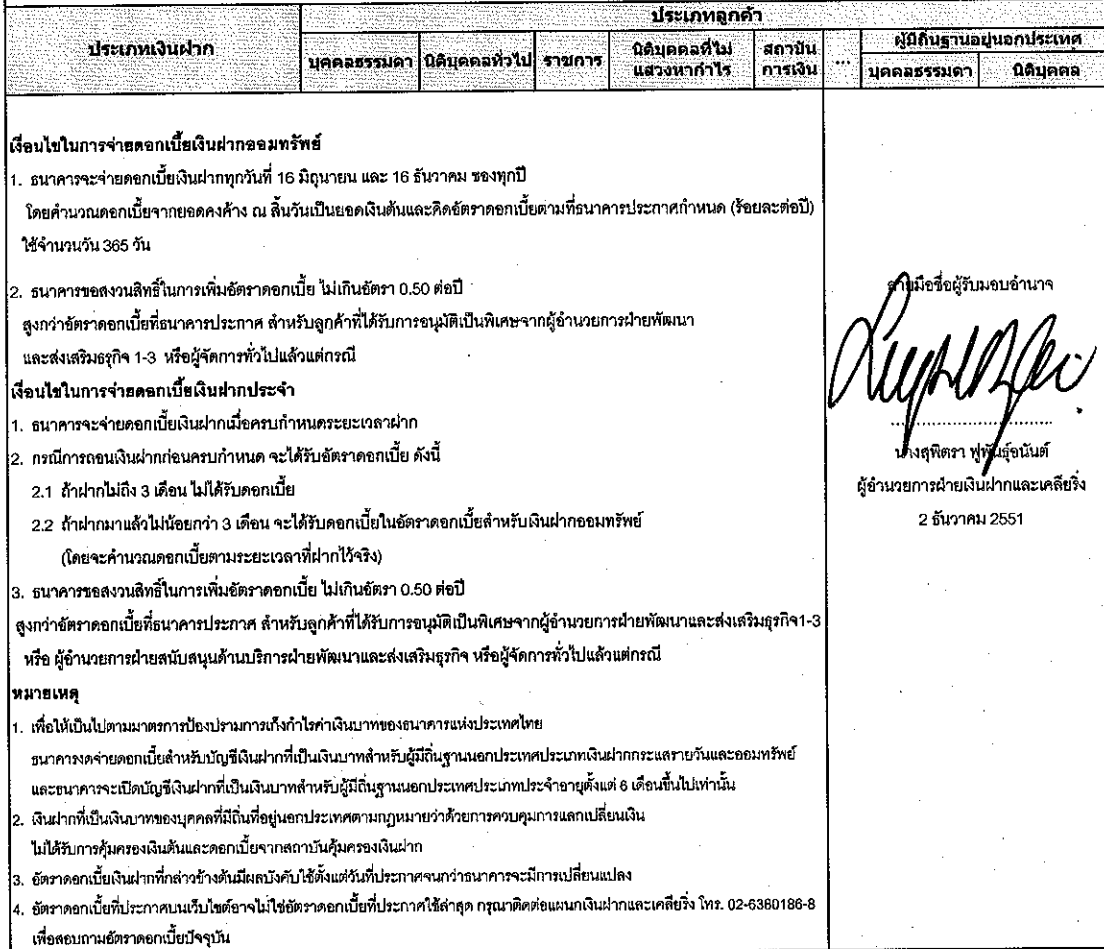 ประเภทลูกค้า
ประเภทเงินฝาก
บุคคลธรรมดา นิติบุคคลทั่วไป ราชการ นิติบุคคลที่ไม่ สถาบัน ... ผู้มีถิ่นฐานอยู่นอกประเทศ
แสวงหากำไร การเงิน บุคคลธรรมดา นิติบุคคล
เงื่อนไขในการจ่ายดอกเบี้ยเงินฝากออมทรัพย์
1. ธนาคารจะจ่ายดอกเบี้ยเงินฝากทุกวันที่ 16 มิถุนายน และ 16 ธันวาคม ของทุกปี
โดยคำนวณดอกเบี้ยจากยอดคงค้าง ณ สิ้นวันเป็นยอดเงินต้นและคิดอัตราดอกเบี้ยตามที่ธนาคารประกาศกำหนด (ร้อยละต่อปี)
ใช้จำนวนวัน 365 วัน
2. ธนาคารขอสงวนสิทธิ์ในการเพิ่มอัตราดอกเบี้ย ไม่เกินอัตรา 0.50 ต่อปี
สูงกว่าอัตราดอกเบี้ยที่ธนาคารประกาศ สำหรับลูกค้าที่ได้รับการอนุมัติเป็นพิเศษจากผู้อำนวยการฝ่ายพัฒนา
และส่งเสริมธุรกิจ 1-3 หรือผู้จัดการทั่วไปแล้วแต่กรณี
เงื่อนไขในการจ่ายดอกเบี้ยเงินฝากประจำ
1. ธนาคารจะจ่ายดอกเบี้ยเงินฝากเมื่อครบกำหนดระยะเวลาฝาก
2. กรณีการถอนเงินฝากก่อนครบกำหนด จะได้รับอัตราดอกเบี้ย ดังนี้
2.1 ถ้าฝากไม่ถึง 3 เดือน ไม่ได้รับดอกเบี้ย
2.2 ถ้าฝากมาแล้วไม่น้อยกว่า 3 เดือน จะได้รับดอกเบี้ยในอัตราดอกเบี้ยสำหรับเงินฝากออมทรัพย์
(โดยจะคำนวณดอกเบี้ยตามระยะเวลาที่ฝากไว้จริง)
3. ธนาคารขอสงวนสิทธิ์ในการเพิ่มอัตราดอกเบี้ย ไม่เกินอัตรา 0.50 ต่อปี
สูงกว่าอัตราดอกเบี้ยที่ธนาคารประกาศ สำหรับลูกค้าที่ได้รับการอนุมัติเป็นพิเศษจากผู้อำนวยการฝ่ายพัฒนาและส่งเสริมธุรกิจ1-3
หรือ ผู้อำนวยการฝ่ายสนับสนุนด้านบริการฝ่ายพัฒนาและส่งเสริมธุรกิจ หรือผู้จัดการทั่วไปแล้วแต่กรณี
หมายเหตุ
1. เพื่อให้เป็นไปตามมาตรการป้องปรามการเก็งกำไรค่าเงินบาทของธนาคารแห่งประเทศไทย
ธนาคารงดจ่ายดอกเบี้ยสำหรับบัญชีเงินฝากที่เป็นเงินบาทสำหรับผู้มีถิ่นฐานนอกประเทศประเภทเงินฝากกระแสรายวันและออมทรัพย์
และธนาคารจะเปิดบัญชีเงินฝากที่เป็นเงินบาทสำหรับผู้มีถิ่นฐานนอกประเทศประเภทประจำอายุตั้งแต่ 6 เดือนขึ้นไปเท่านั้น
2. เงินฝากที่เป็นเงินบาทของบุคคลที่มีถิ่นที่อยู่นอกประเทศตามกฎหมายว่าด้วยการควบคุมการแลกเปลี่ยนเงิน
ไม่ได้รับการคุ้มครองเงินต้นและดอกเบี้ยจากสถาบันคุ้มครองเงินฝาก
3. อัตราดอกเบี้ยเงินฝากที่กล่าวข้างต้นมีผลบังคับใช้ตั้งแต่วันที่ประกาศจนกว่าธนาคารจะมีการเปลี่ยนแปลง
4. อัตราดอกเบี้ยที่ประกาศบนเว็บไซต์อาจไม่ใช่อัตราดอกเบี้ยที่ประกาศใช้ล่าสุด กรุณาติดต่อแผนกเงินฝากและเคลียริ่ง โทร. 02-6360186-8
เพื่อสอบถามอัตราดอกเบี้ยปัจจุบัน
ลายมือชื่อผู้รับมอบอำนาจ
นางสุพิตรา ฟูพันธุ์อนันต์
ผู้อำนวยการฝ่ายเงินฝากและเคลียริ่ง
2 ธันวาคม 2551